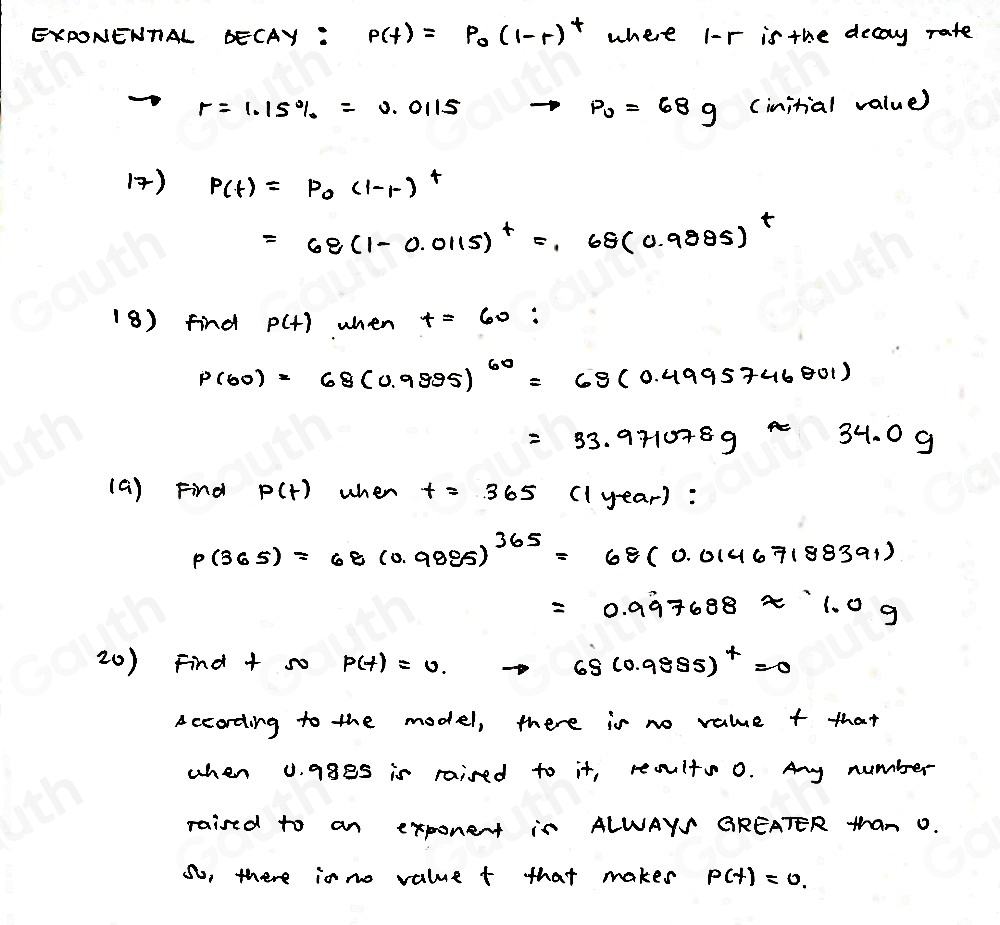 EXPONENTIAL DECAY : P(t) = P₀ (1-r)ᵗ where 1-r is the decay rate
→ r = 1.15% = 0.0115 → P₀ = 68 g (initial value)
17) P(t) = P₀ (1-r)ᵗ
= 68 (1 - 0.0115)ᵗ = 68(0.9885)ᵗ
18) find P(t) when t = 60 :
P(60) = 68(0.9885)⁶⁰ = 68(0.4995746801)
= 33.971078 g ≈ 34.0 g
19) Find P(t) when t = 365 (1 year) :
P(365) = 68 (0.9885)³⁶⁵ = 68(0.01467188391)
= 0.997688 ≈ 1.0 g
20) Find t so P(t) = 0. → 68(0.9885)ᵗ = 0
According to the model, there is no value t that
when 0.9885 is raised to it, results 0. Any number
raised to an exponent is ALWAYS GREATER than 0.
So, there is no value t that makes P(t) = 0.